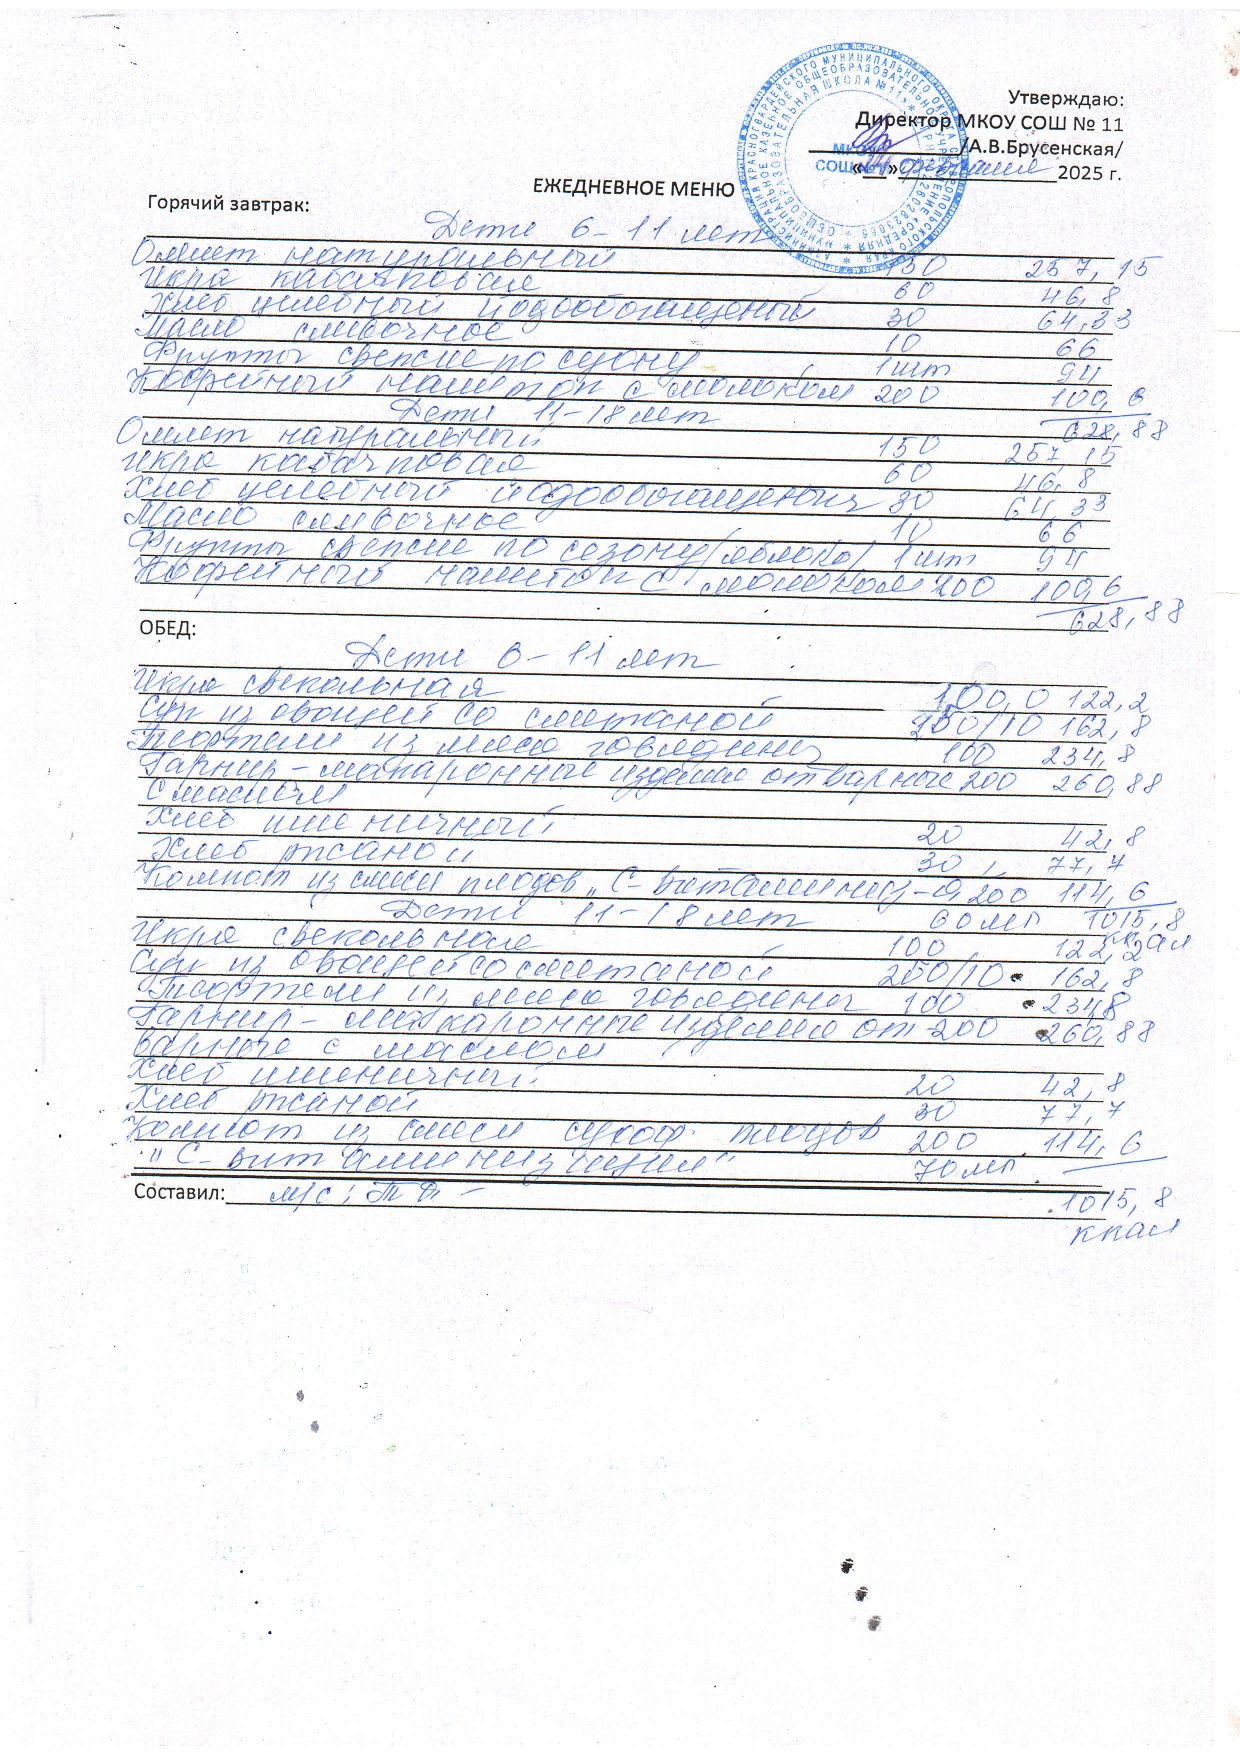 Утверждаю:
Директор МКОУ СОШ № 11
/А.В.Брусенская/
«__» февраля 2025 г.
ЕЖЕДНЕВНОЕ МЕНЮ
Горячий завтрак:
Дети 6-11 лет
Омлет натуральный 150 257,15
Икра кабачковая 60 46,8
Хлеб целебный йодообогащеный 30 64,33
Масло сливочное 10 66
Фрукты свежие по сезону 1шт 94
Кофейный напиток с молоком 200 100,6
Дети 11-18 лет 628,88
Омлет натуральный 150 257,15
Икра кабачковая 60 46,8
Хлеб целебный йодообогащеный 30 64,33
Масло сливочное 10 66
Фрукты свежие по сезону/яблоко/ 1шт 94
Кофейный напиток с молоком 200 100,6
628,88
ОБЕД:
Дети 6-11 лет
Икра свекольная 100,0 122,2
Суп из овощей со сметаной 250/10 162,8
Тефтели из мяса говядины 100 234,8
Гарнир - макаронные изделие отварные 200 260,88
с маслом
Хлеб пшеничный 20 42,8
Хлеб ржаной 30 77,7
Компот из смеси плодов „С-Витаминиз-я 200 114,6
Дети 11-18 лет 60мг 1015,8
ккал
Икра свекольная 100 122,2
Суп из овощей со сметаной 250/10 162,8
Тефтели из мяса говядины 100 234,8
Гарнир - макаронные изделие от- 200 260,88
варные с маслом
Хлеб пшеничный 20 42,8
Хлеб ржаной 30 77,7
Компот из смеси сухоф. плодов 200 114,6
"С-витаминизация" 70мг
Составил: м/с; 1015,8
ккал